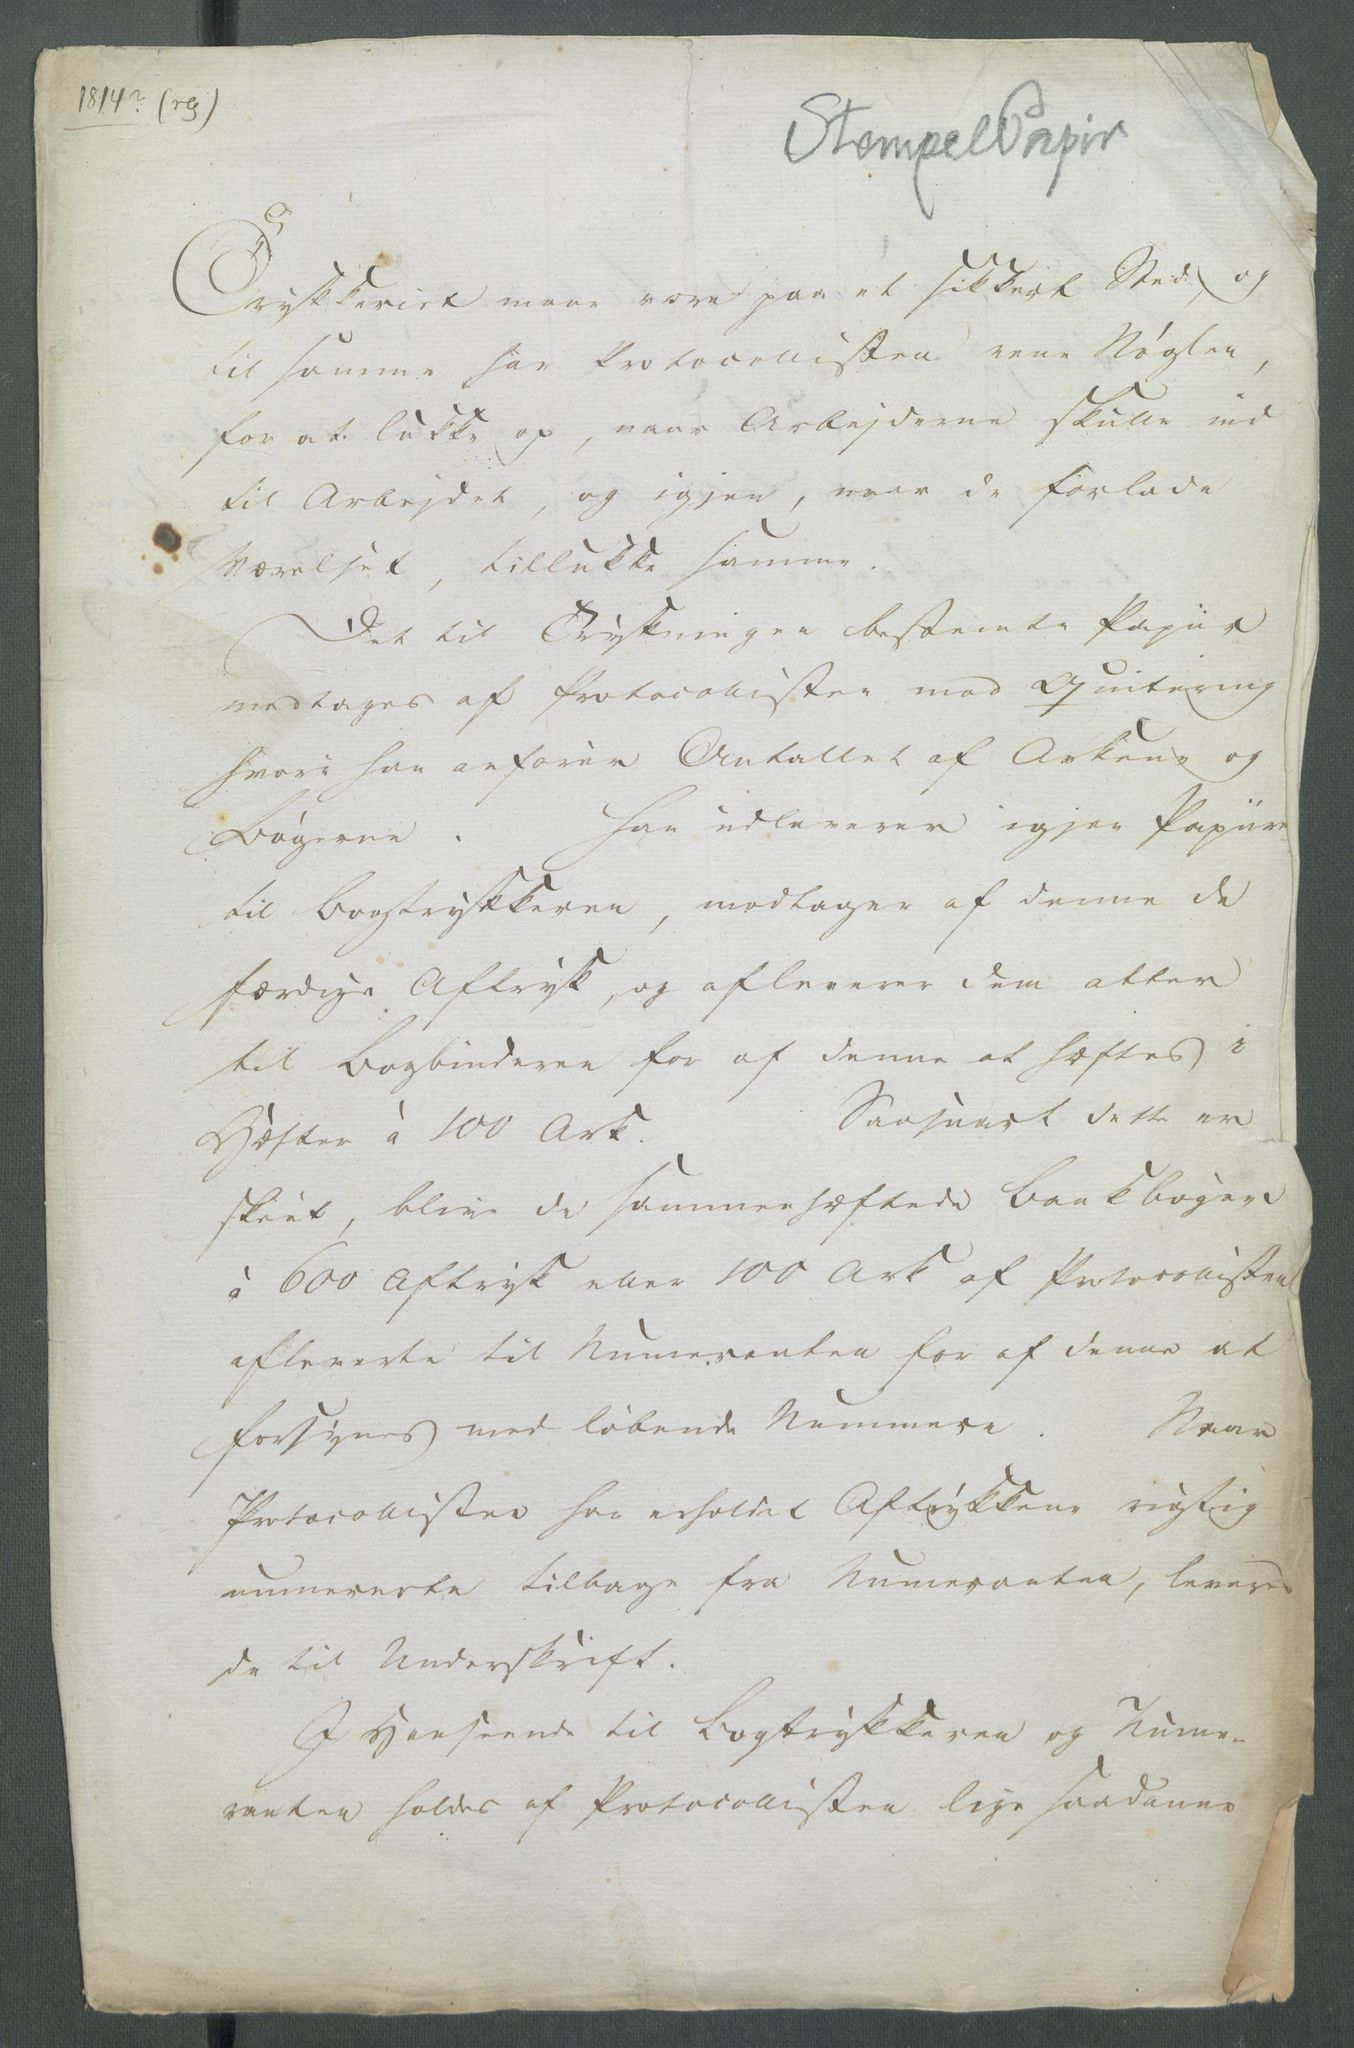 1814? (reg)
StempelPapir
Trykkeriet maae være paa et sikkert Sted, og
til samme har Protocollisten eene Nøglen,
for at lukke op, naar Arbejderne skulle ind
til Arbejdet, og igjen, naar de forlade
Værelset, tillukke samme.
Det til Trykningen bestemte Papiir
modtages af Protocollisten mod Qvitering
hvori han anfører Antallet af Arkene og
Bøgerne. Han udleverer igjen Papiiret
til Bogtrykkeren, modtager af denne de
færdige Aftryk, og afleverer dem atter
til Bogbinderen for af denne at hæftes i
Hæfter à 100 Ark. Saasnart dette er
skeet, blive de sammenhæftede Bankbøger
à 600 Aftryk eller 100 Ark af Protocollisten
afleverte til Numeranten for af denne at
forsynes med løbende Nummere. Naar
Protocollisten har erholdet Aftrykkene rigtig
numererte tilbage fra Numeranten, leveres
de til Underskrift.
I Henseende til Bogtrykkeren og Nume-
ranten holdes af Protocollisten lige saadanne